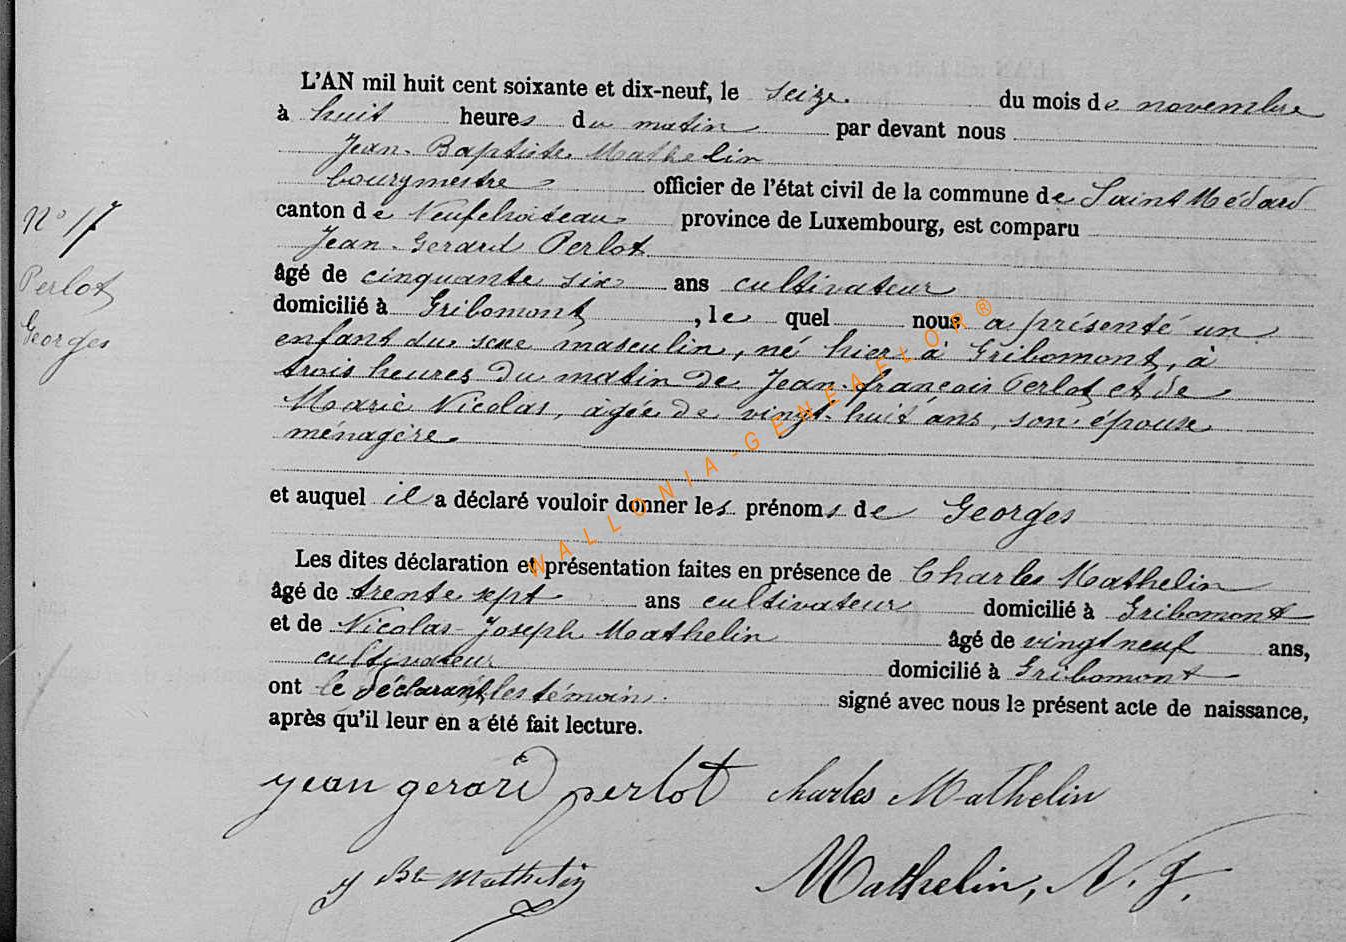 L'AN mil huit cent soixante et dix-neuf, le seize du mois de novembre
à huit heures du matin par devant nous
Jean-Baptiste Mathelin
bourgmestre officier de l'état civil de la commune de Saint Médard
N° 17
canton de Neufchateau province de Luxembourg, est comparu
Jean-Gerard Perlot
Perlot
âgé de cinquante six ans cultivateur
domicilié à Gribomont, le quel nous a présenté un
Georges
enfant du sexe masculin, né hier à Gribomont, à
trois heures du matin de Jean-françois Perlot et de
Marie Nicolas, âgée de vingt-huit ans, son épouse
ménagère
et auquel il a déclaré vouloir donner les prénoms de Georges
Les dites déclaration et présentation faites en présence de Charles Mathelin
âgé de trente sept ans cultivateur domicilié à Gribomont
et de Nicolas-Joseph Mathelin âgé de vingt neuf ans,
cultivateur domicilié à Gribomont
ont le déclarant, les témoins signé avec nous le présent acte de naissance,
après qu'il leur en a été fait lecture.
jean gerard perlot Charles Mathelin
J Bte Mathelin Mathelin, N. J.
WALLONIA-GENEAFLOR®